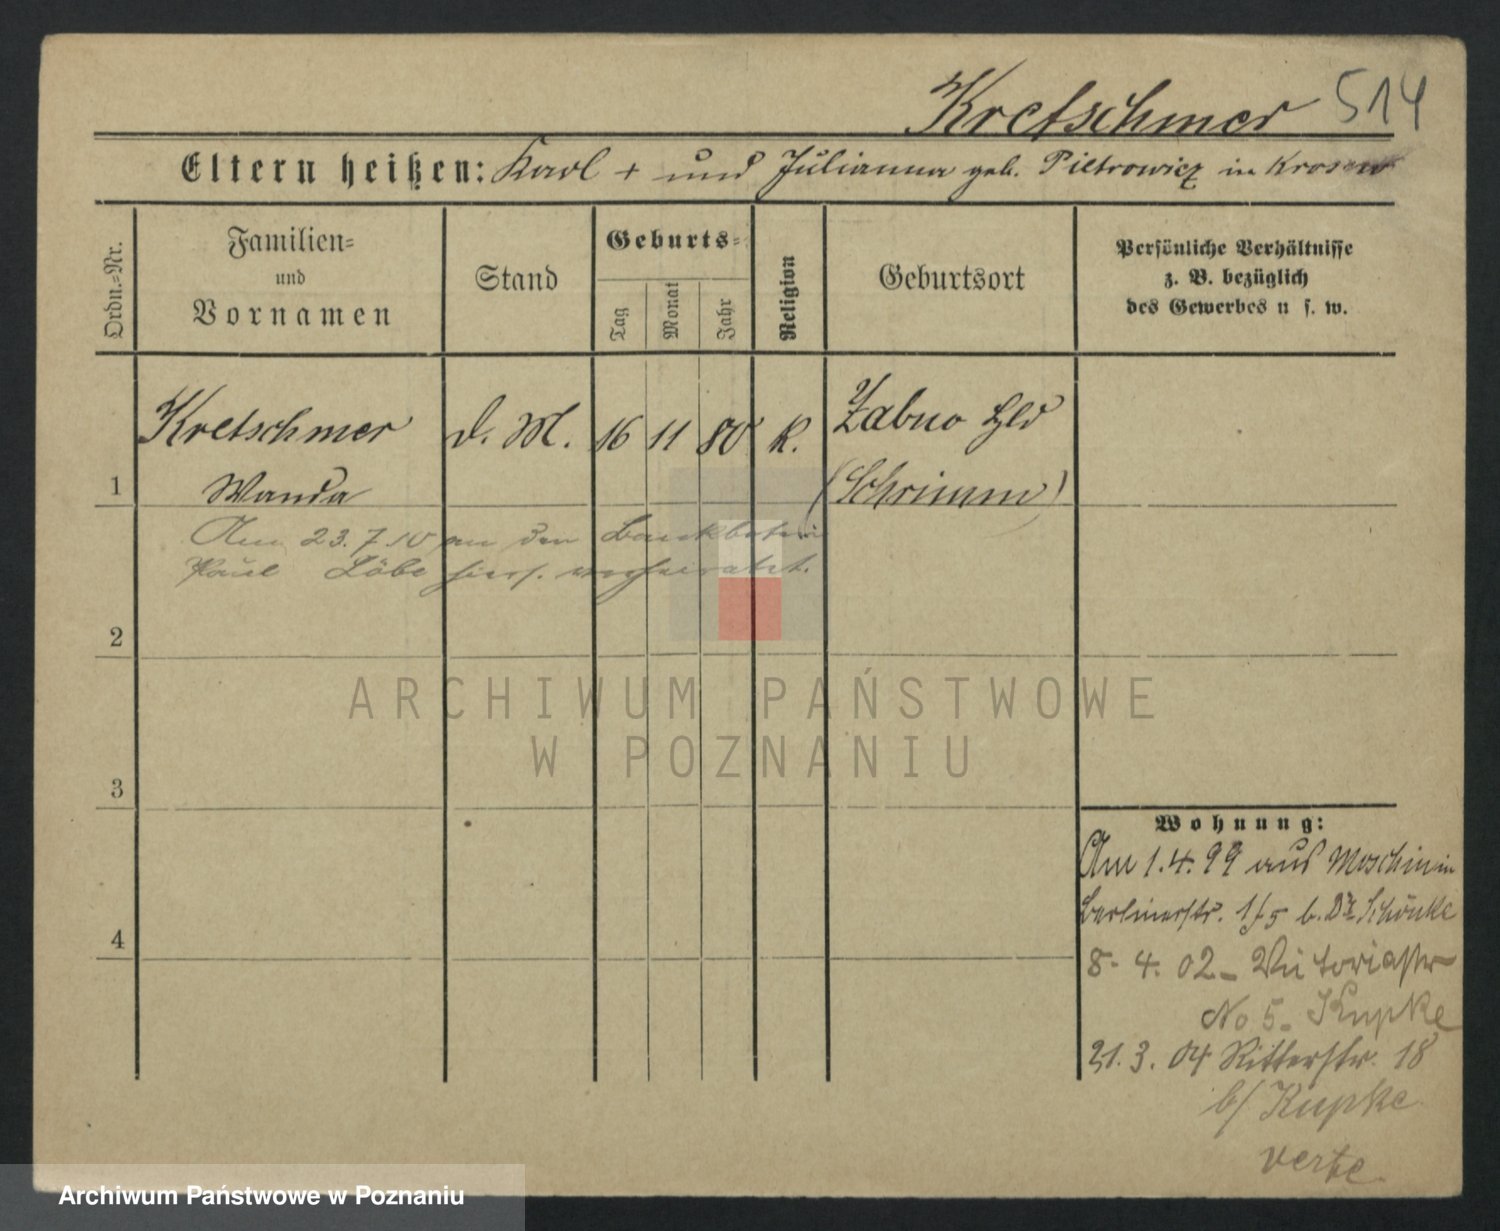 Kretschmer 514
Eltern heißen: Karl + und Julianna geb. Pietrowicz in Krosno
Ordn.=Nr.
Familien=
und
Vornamen
Stand
Geburts=
Tag
Monat
Jahr
Religion
Geburtsort
Persönliche Verhältnisse
z. B. bezüglich
des Gewerbes u s. w.
Kretschmer d. M. 16 11 80 K. Zabno Hld
1 Wanda (Schrimm)
Am 23.7.10 an den
Paul Löbe hiers. verheiratet.
2
ARCHIWUM PAŃSTWOWE
W POZNANIU
3
Wohnung:
Am 1.4.99 aus Moschin in
Berlinerstr. b. Dr. Schönke
4
8. 4. 02 - Victoriastr
No 5. Kupke
21. 3. 04 Ritterstr. 18
b/ Kupke
verte
Archiwum Państwowe w Poznaniu